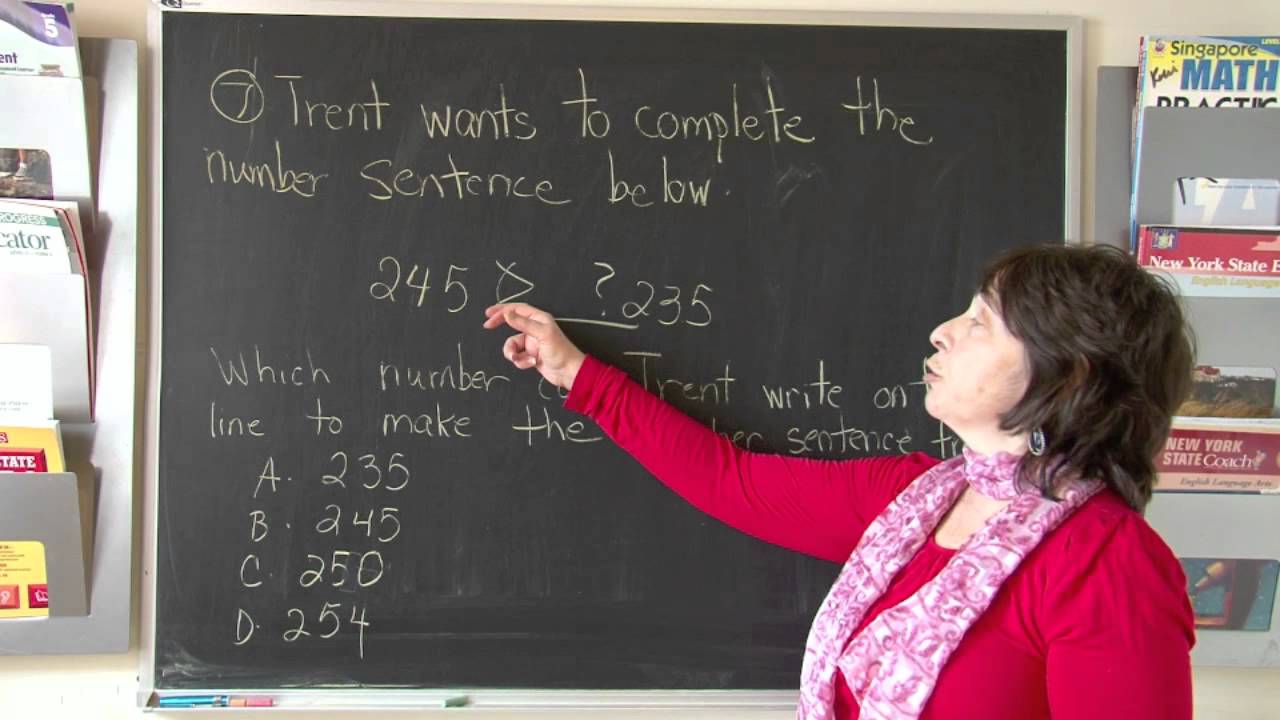 ⑦ Trent wants to complete the
number sentence below.
245 > ? 235
Which number Trent write on
line to make the sentence
A. 235
B. 245
C. 250
D. 254
5
PROGRESS
cator
STATE
Singapore
MATH
PRACTIC
LEVEL
New York State E
English Language
NEW YORK
STATE Coach
English Language Arts